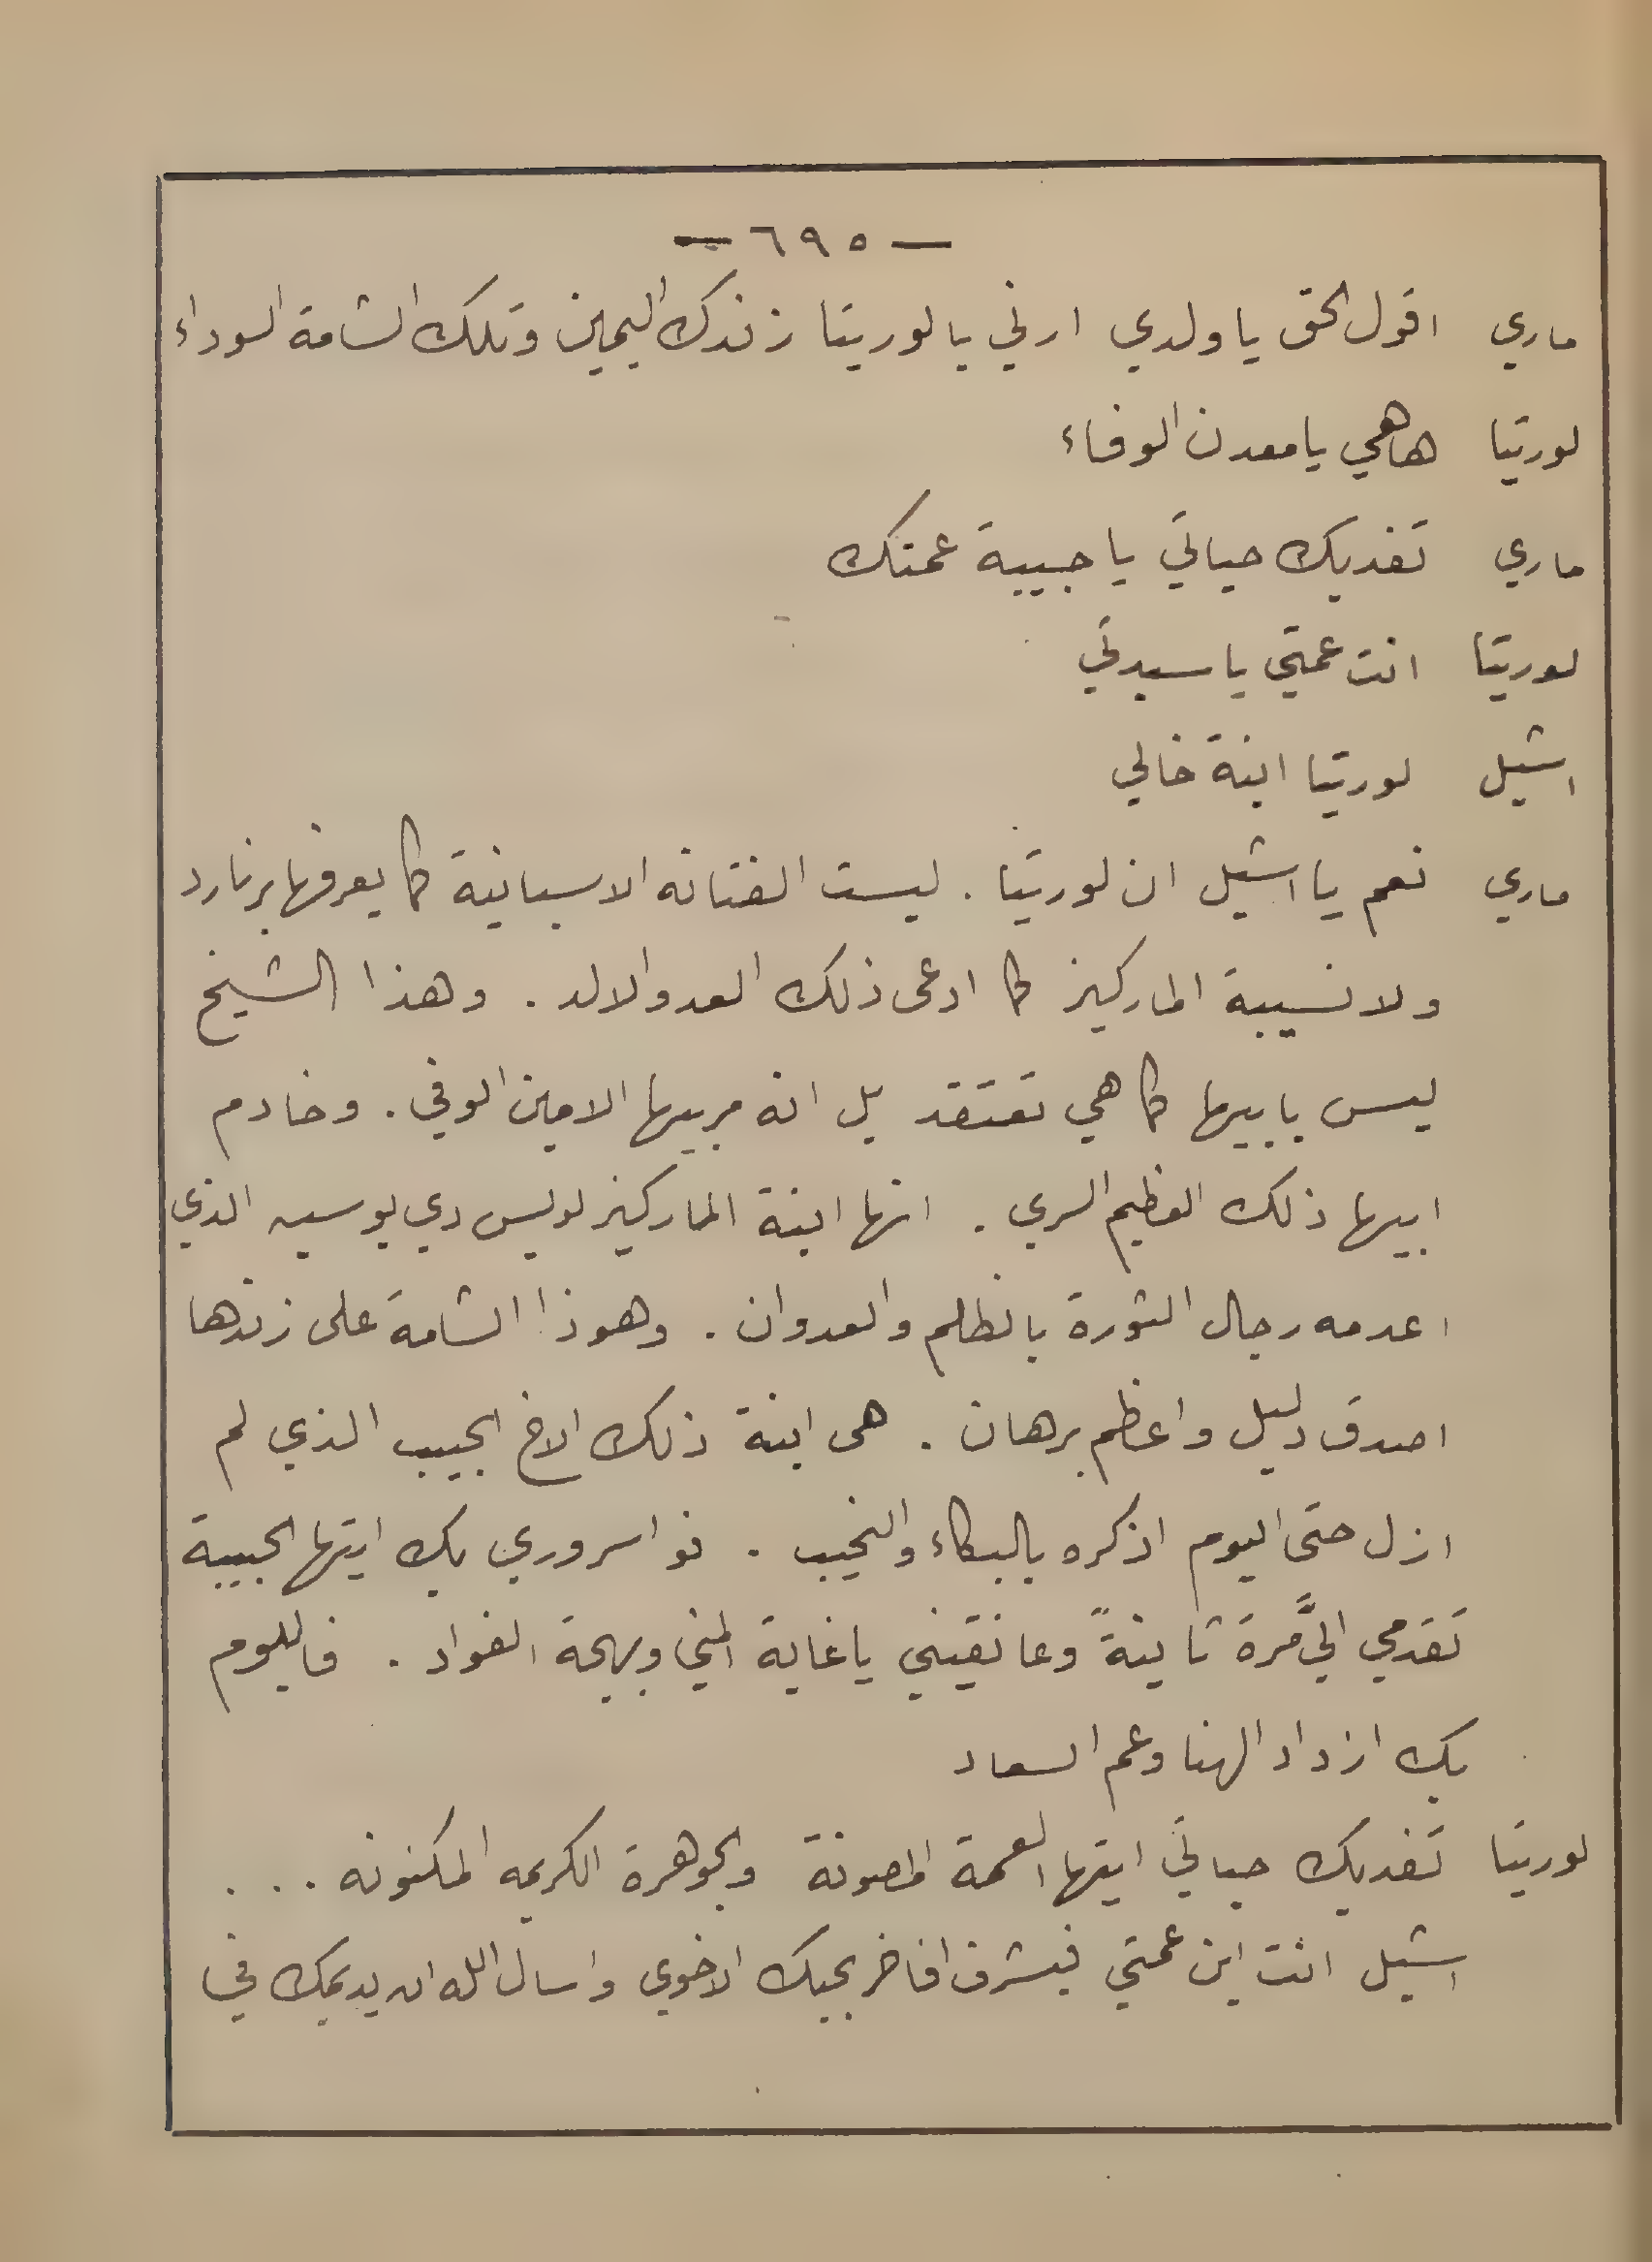 — ٦٩٥ —
ماري اقول الحق يا ولدي ارني يا لوريتا زندك اليمين وتلك الشامة السوداء
لوريتا هاهي يا معدن الوفاء
ماري تفديك حياتي يا حبيبة عمتك
لوريتا انت عمتي يا سيدتي
اشيل لوريتا ابنة خالي
ماري نعم يا اشيل ان لوريتا . ليست الفتانه الاسبانية كما يعرفها برنارد
ولا نسيبة الماركيز كما ادعى ذلك العدو الالد . وهذا الشيخ
ليس بابيها كما هي تعتقد بل انه مربيها الامين الوفي . وخادم
ابيها ذلك العظيم السري . انها ابنة الماركيز لويس دي بوسيه الذي
اعدمه رجال الثورة بالظلم والعدوان . وهوذا الشامة على زندها
اصدق دليل واعظم برهان . هى ابنة ذلك الاخ الحبيب الذي لم
ازل حتى اليوم اذكره بالبكاء والنحيب . فوا سروري بك ايتها الحبيبة
تقدمي اليَّ مرة ثانيةً وعانقيني يا غاية المنى وبهجة الفواد . فاليوم
بك ازداد الهنا وعم السعاد
لوريتا تفديك حياتي ايتها العمة المصونة والجوهرة الكريمه المكنونه . . .
اشيل انت ابن عمتي فبشرف افاخر بحبك الاخوي واسال الله ان يديمك في